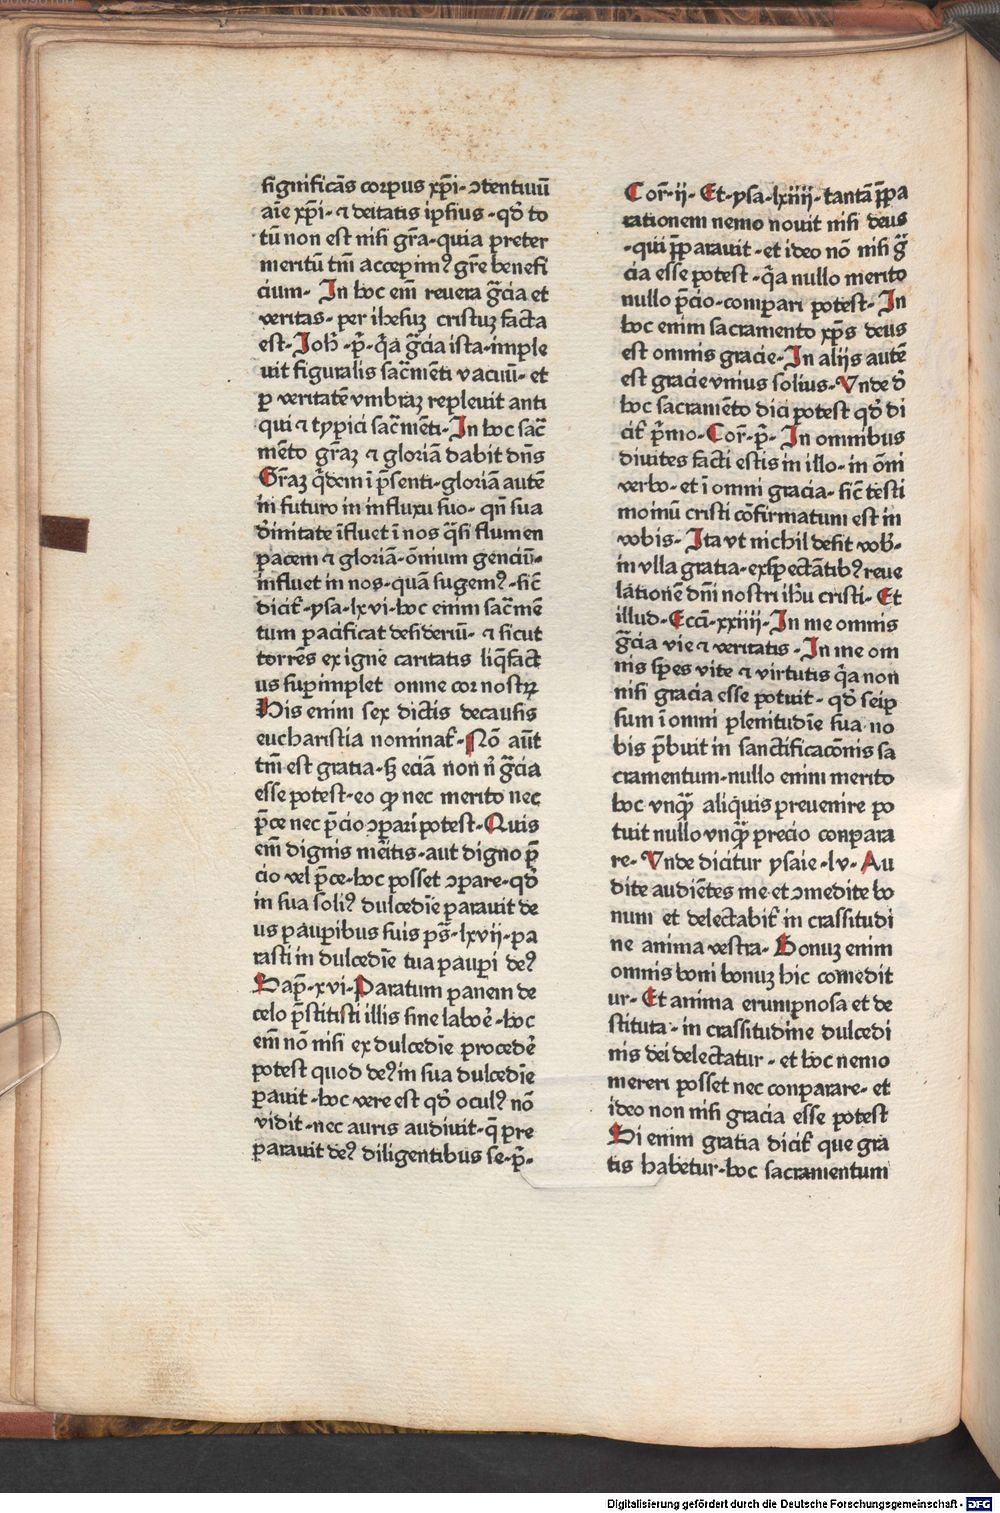 significās corpus xp̄i-ↄtentiuū
aīe xp̄i-⁊ deitatis ipsius-qđ to
tū non est nisi gr̄a-quia preter
meritū tm̄ accepim⁹ gr̄e benefi
cium- In hoc em̄ reuera gr̄cia et
veritas-per ihesuz cristuz facta
est-Joh̄-p̄-q̄a gr̄cia ista-imple
uit figuralis sac̄mēti vacuū-et
p̱ veritatē vmbraz repleuit anti
qui ⁊ typici sac̄mēti-In hoc sac̄
mēto gr̄az ⁊ gloriā dabit dn̄s
Gr̄az q̄dem ī p̄senti-gloriā autē
in futuro in influxu suo-qn̄ sua
diuinitate īfluet ī nos q̄si flumen
pacem ⁊ gloriā-ōmium genciū-
influet in nos-quā sugem⁹-sic̄
dicit̄-ysa-lxvi-hoc enim sac̄mē
tum pacificat desideriū-⁊ sicut
torrēs ex igne caritatis liq̄fact
us sup̱implet omne cor nostrꝝ
His enim sex dictis decausis
eucharistia nominat̄-Nō aūt
tm̄ est gratia-sꝫ eciā non nͥ gr̄cia
esse potest-eo ꝙ nec merito nec
p̄ce nec p̄cio ↄparī potest-Quis
em̄ dignis mēitis-aut digno p̄
cio vel p̄ce-hoc posset ↄpare-qđ
in sua soli⁹ dulcedīe parauit de
us paupibus suis ps̄-lxvij-pa
rasti in dulcedīe tua paupi de⁹
Sap̄-xvi-Paratum panem de
celo p̄stitisti illis sine laboē-hoc
em̄ nō nisi ex dulcedīe procedē
potest quod de⁹ in sua dulcedīe
pauit-hoc vere est qđ ocul⁹ nō
vidit-nec auris audiuit-q̄ pre
parauit de⁹ diligentibus se-p̄-
Cor̄-ij-Et-ysa-lxiiij-tantā p̄pa
rationem nemo nouit nisi deus
-qui p̄parauit-et ideo nō nisi gr̄
cia esse potest-q̄a nullo merito
nullo p̄cio-compari potest-In
hoc enim sacramento xp̄s deus
est omnis gracie-In alijs autē
est gracie vnius solius-Vnde đ
hoc sacramēto dici potest qđ di
cit̄ p̄mo-Cor̄-p̄-In omnibus
diuites facti estis in illo-in ōni
verbo-et ī omni gracia-sic̄ testi
moinū cristi cōfirmatum est in
vobis-Ita vt nichil desit vob̄-
in vlla gratia-exspectātib⁹ reue
lationē dn̄i nostri ih̄u cristi-Et
illud-Ecci̅-xxiiij-In me omnis
gr̄cia vie ⁊ veritatis-In me om
nis spes vite ⁊ virtutis q̄a non
nisi gracia esse potuit-qđ seip̱
sum ī omni plenitudīe sua no
bis p̄buit in sanctificacōnis sa
cramentum-nullo enim merito
hoc vnq̄ aliquis preuenire po
tuit nullo vnq̄ precio conpara
re-Vnde dicitur ysaie-lv-Au
dite audiētes me et ↄmedite bo
num et delectabit̄ in crassitudi
ne anima vestra-Bonuz enim
omnis boni bonuz hic comedit
ur-Et anima erumpnosa et de
stituta-in crassitudine dulcedi
nis dei delectatur-et hoc nemo
mereri posset nec conparare-et
ideo non nisi gracia esse potest
Si enim gratia dicit̄ que gra
tis habetur-hoc sacramentum
Digitalisierung gefördert durch die Deutsche Forschungsgemeinschaft - DFG